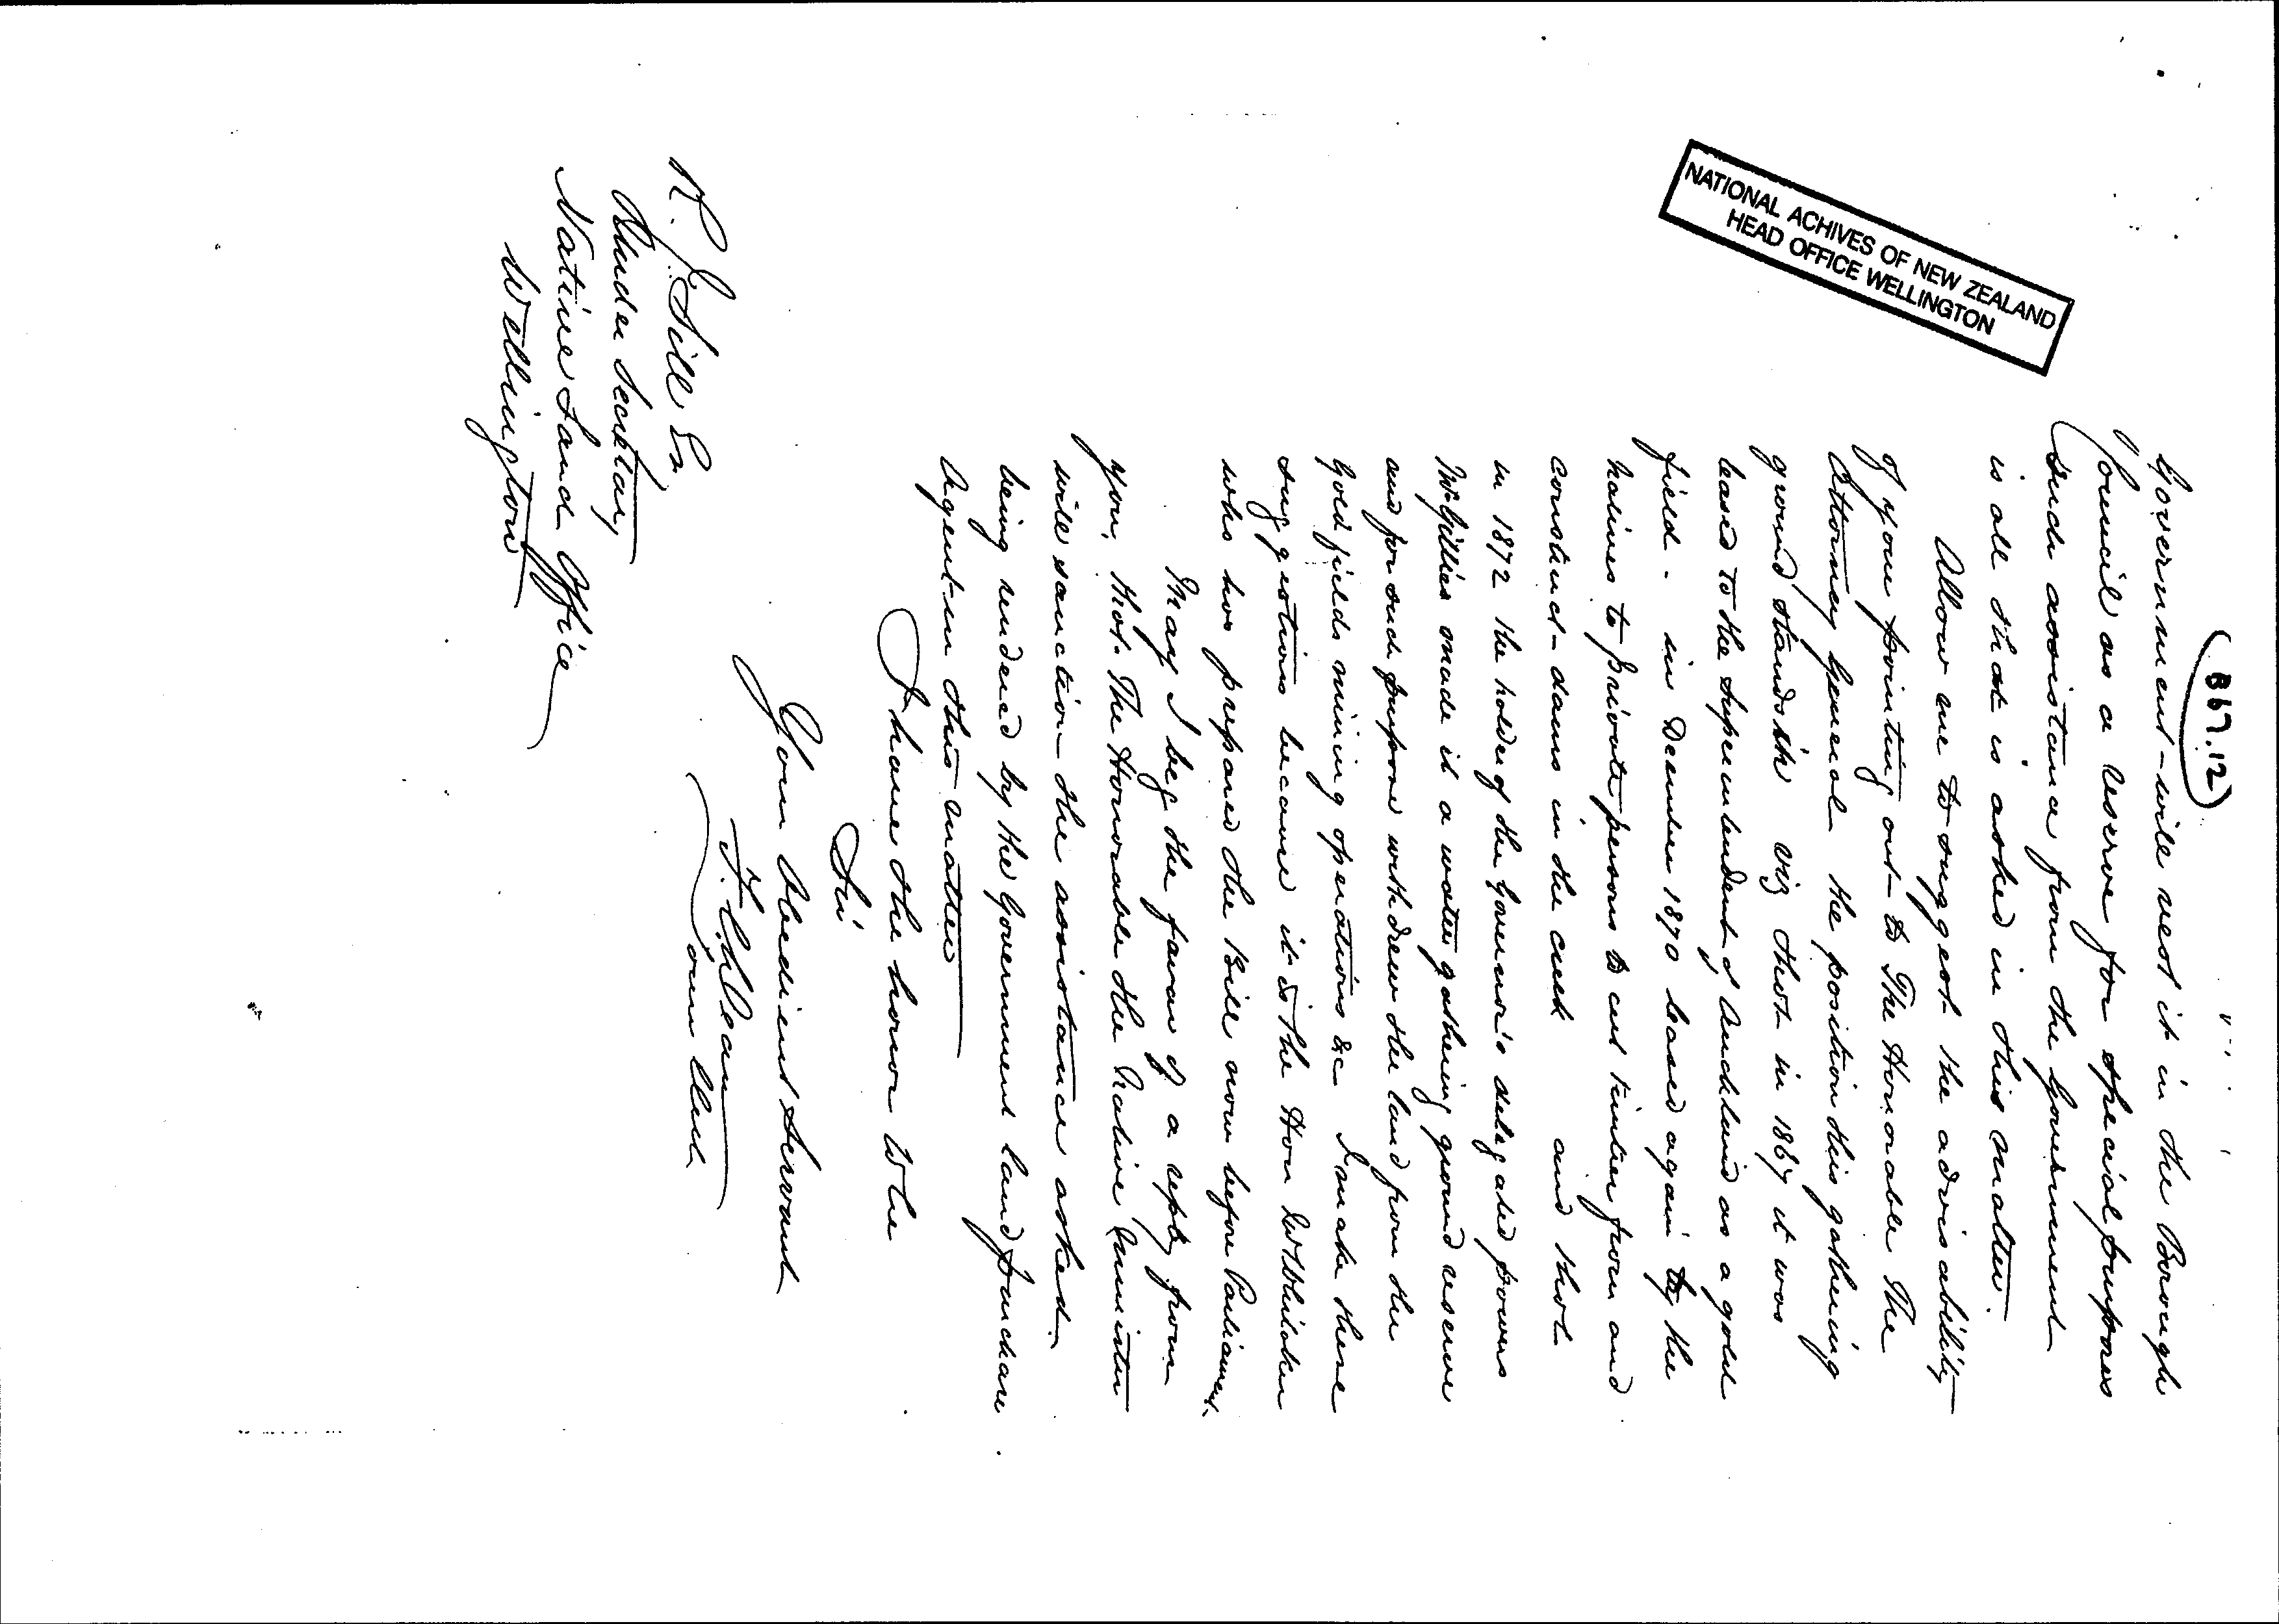 (B67.12)
NATIONAL ACHIVES OF NEW ZEALAND
HEAD OFFICE WELLINGTON
Government will vest it in the Borough
Council as a reserve for special purposes
such assistance from the Government
is all that is asked in this matter.
Allow me to suggest the advisability
of your pointing out to The Honorable The
Attorney General the position this gathering
ground stands in viz that in 1867 it was
leased to the Superintendent of Auckland as a gold
field - in December 1870 leased again by the
natives to private persons to cut timber from and
construct dams in the creek and that
in 1872 the holder of the Governor's delegated powers
Mr Gillies made it a water gathering ground reserve
and for such purpose withdrew the land from the
Gold fields mining operations &c I make these
suggestions because it is the Hon Whitaker
who has prepared the Bill now before Parliament.
May I beg the favor of a reply from
you, that The Honorable the Native Minister
will sanction the assistance asked
being rendered by the Government land purchase
Agent in this matter
I have the honor to be
Sir
Your Obedient Servant
Town Clerk
R. J. Gill Esq
Under Secretary
Native Land Office
Wellington